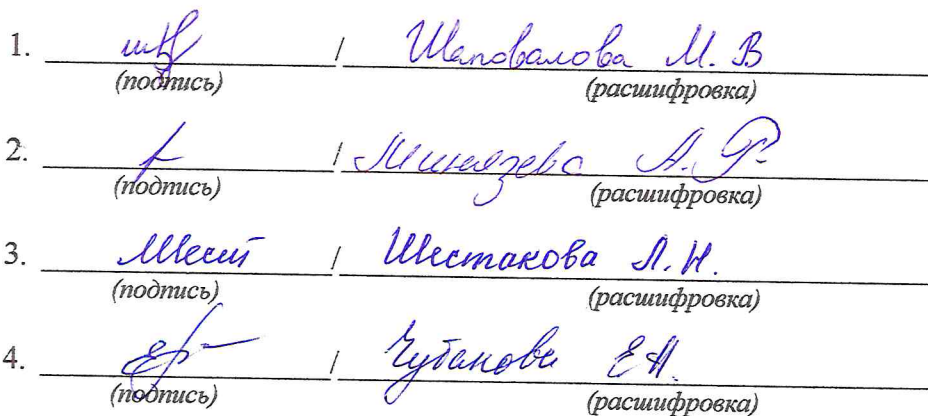 1. / Шаповалова М. В
(подпись) (расшифровка)
2. / Миназева А. Р.
(подпись) (расшифровка)
3. Шест / Шестакова Л. Н.
(подпись) (расшифровка)
4. / Чубанова Е А.
(подпись) (расшифровка)